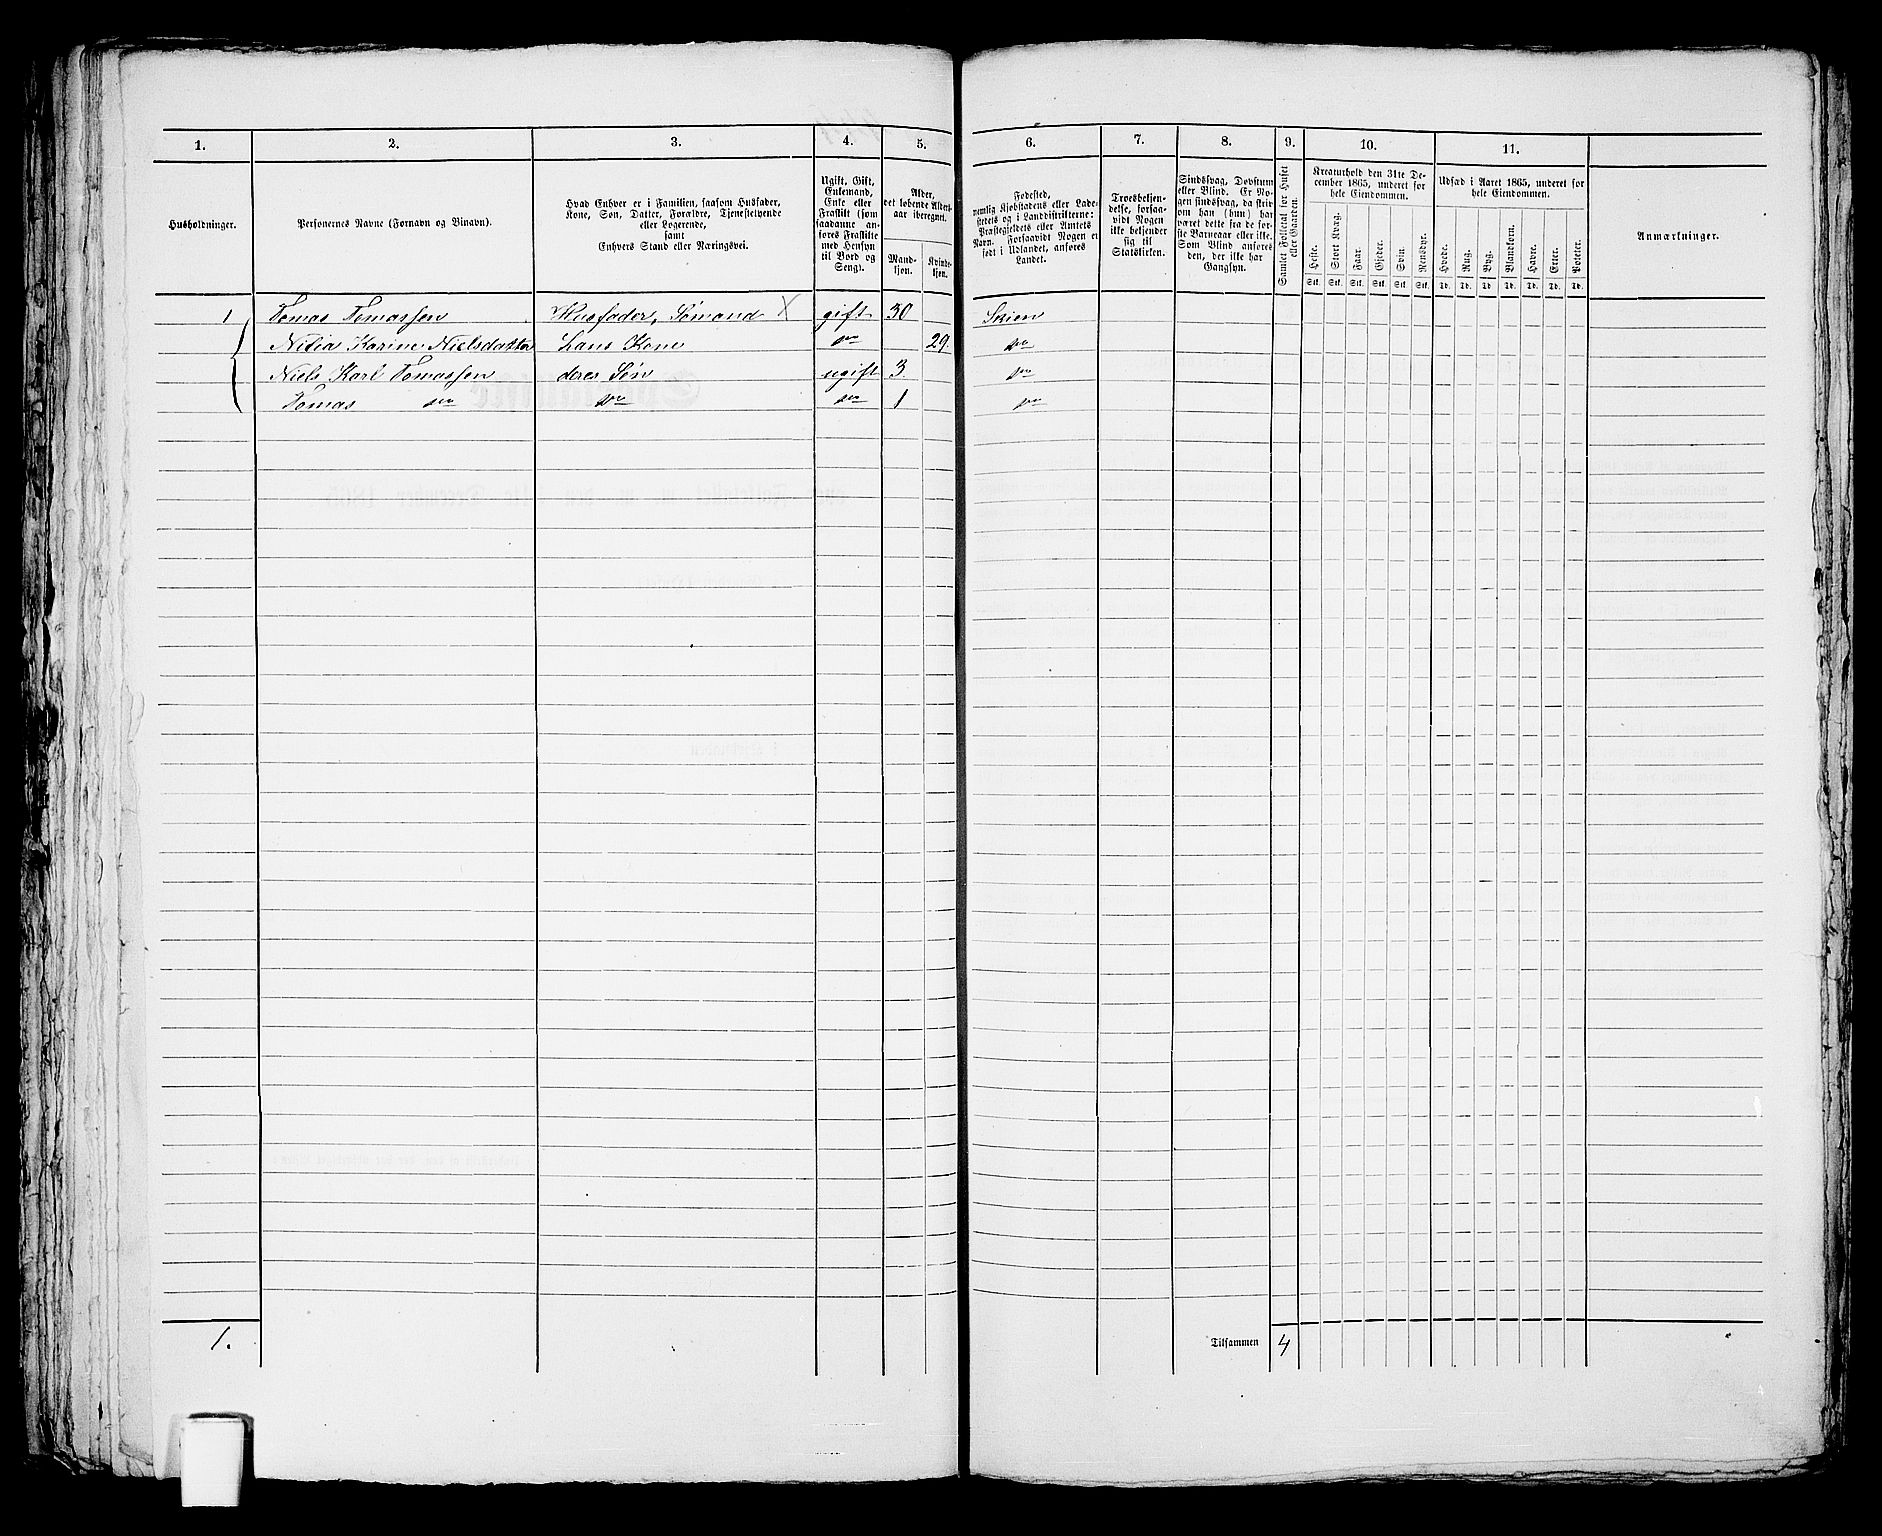 1. 2. 3. 4. 5. 6. 7. 8. 9. 10. 11.
Husholdninger.
Personernes Navne (Fornavn og Binavn).
Hvad Enhver er i Familien, saasom Husfader,
Kone, Søn, Datter, Forældre, Tjenestetyende
eller Logerende,
samt
Enhvers Stand eller Næringsvei.
Ugift, Gift,
Enkemand,
Enke eller
Fraskilt (som
saadanne an-
føres Fraskilte
med Hensyn
til Bord og
Seng).
Alder,
det løbende Alders-
aar iberegnet.
Mand-
kjøn.
Kvinde-
kjøn.
Fødested,
nemlig Kjøbstadens eller Lade-
stedets og i Landdistrikterne:
Præstegjeldets eller Amtets
Navn. Forsaavidt Nogen er
født i Udlandet, anføres
Landet.
Troesbekjen-
delse, forsaa-
vidt Nogen
ikke bekjender
sig til
Statskirken.
Sindssvag, Døvstum
eller Blind. Er No-
gen sindssvag, da skriv
om han (hun) har
været dette fra de før-
ste Barneaar eller ikke.
Som Blind anføres
den, der ikke har
Gangsyn.
Samlet Folketal for Huset
eller Gaarden.
Kreaturhold den 31te De-
cember 1865, underet for
hele Eiendommen.
Heste. Stort Kvæg. Faar. Gjeder. Svin. Rensdyr.
Stk. Stk. Stk. Stk. Stk. Stk.
Udsæd i Aaret 1865, underet for
hele Eiendommen.
Hvede. Rug. Byg. Blandkorn. Havre. Erter. Poteter.
Td. Td. Td. Td. Td. Td. Td.
Anmærkninger.
1 Tomas Tomassen Husfader, Sømand X gift 30 Skien
Karine Nielsdatter hans Kone do 29. do
Niels Karl Tomassen deres Søn ugift 3 do
Tomas do do do 1 do
1. Tilsammen 4